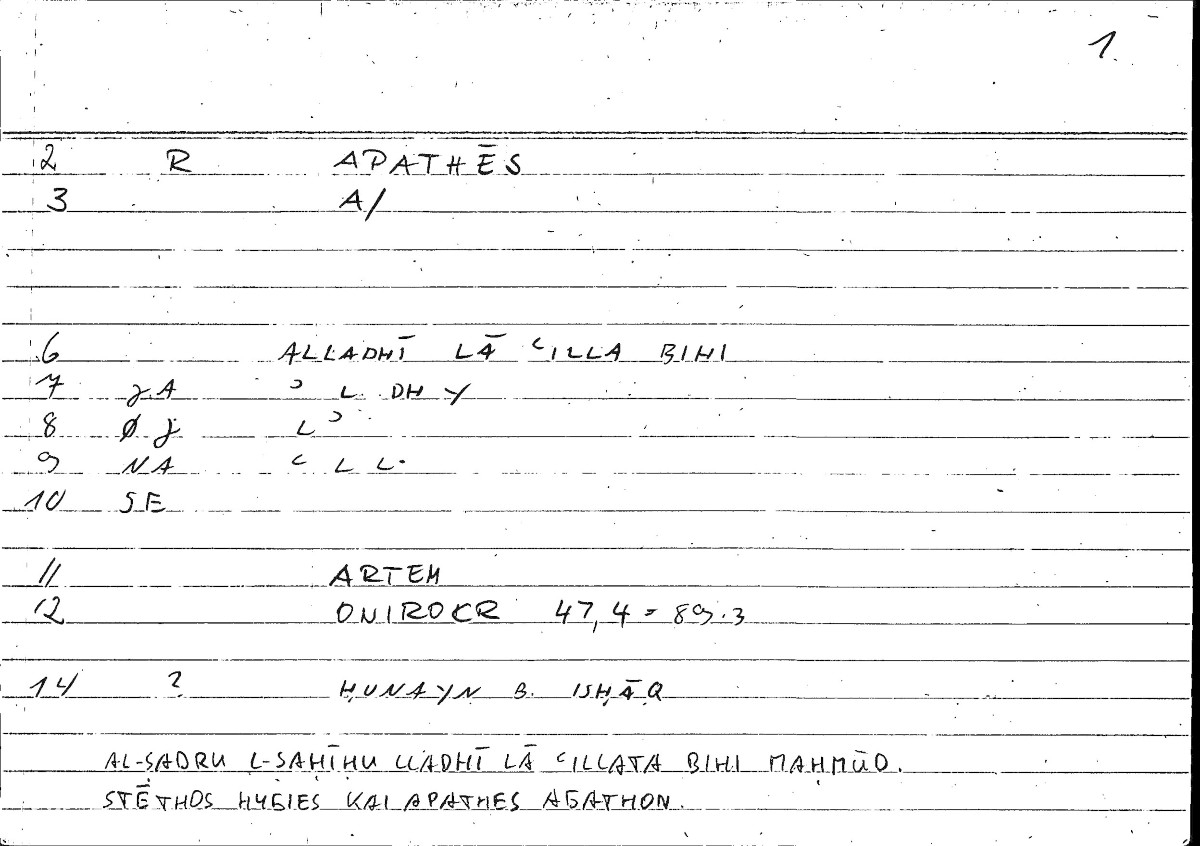 1
2 R APATHĒS
3 A/
6 ALLADHĪ LĀ ʿILLA BIHI
7 ʾ L DHY
8 L ʾ
9 NA ʿ L L
10 SE
11 ARTEM
12 ONIROCR 47,4 = 89.3
14 ? ḤUNAYN B. ISḤĀQ
AL-ṢADRU L-ṢAḤĪḤU LLADHĪ LĀ ʿILLATA BIHI MAḤMŪD.
STĒTHOS HYGIES KAI APATHES AGATHON.